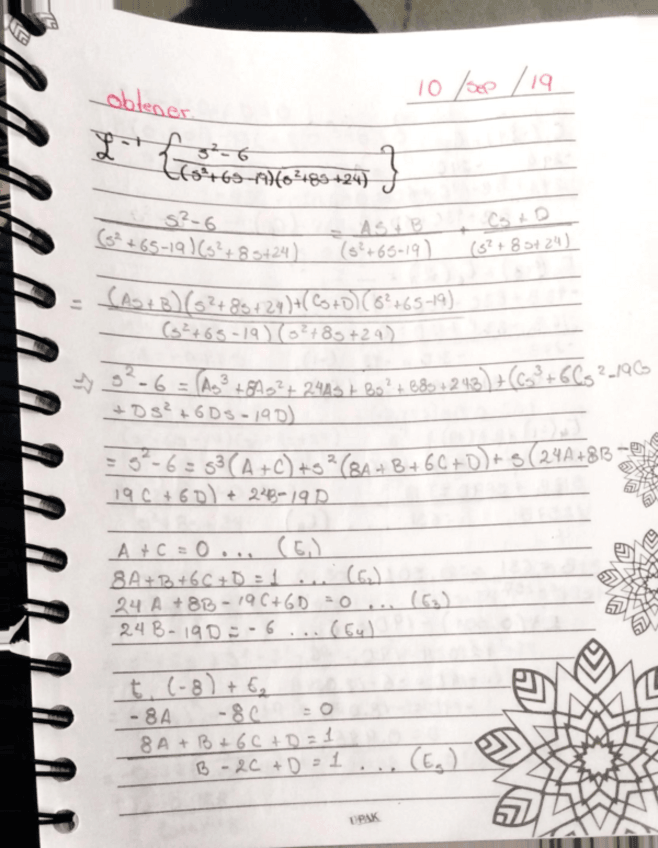 10 / sep / 19
obtener.
ℒ⁻¹ { s²-6 / (s²+6s-19)(s²+8s+24) }
s²-6 / (s²+6s-19)(s²+8s+24) = As+B / (s²+6s-19) + Cs+D / (s²+8s+24)
= (As+B)(s²+8s+24)+(Cs+D)(s²+6s-19) / (s²+6s-19)(s²+8s+24)
⇒ s²-6 = (As³+8As²+24As+Bs²+8Bs+24B)+(Cs³+6Cs²-19Cs
+Ds²+6Ds-19D)
= s²-6 = s³(A+C)+s²(8A+B+6C+D)+s(24A+8B-
19C+6D)+24B-19D
A+C=0 ... (E₁)
8A+B+6C+D=1 ... (E₂)
24A+8B-19C+6D=0 ... (E₃)
24B-19D=-6 ... (E₄)
E₁(-8)+E₂
-8A -8C =0
8A+B+6C+D=1
B-2C+D=1 ... (E₅)